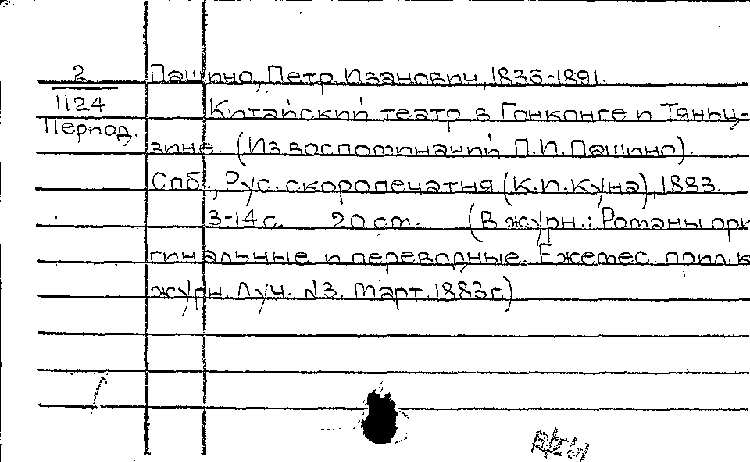 2 Пашино, Петр Иванович, 1836-1891.
1124 Китайский театр в Гонконге и Тяньц-
Период. зине. (Из воспоминаний П.И. Пашино).
Спб., Рус. скоропечатня (К.И. Куна), 1883.
3-14 с. 20 см. (В журн.: Романы ори
гинальные и переводные. Ежемес. прил. к
журн. Луч. №3. Март. 1883 г.)